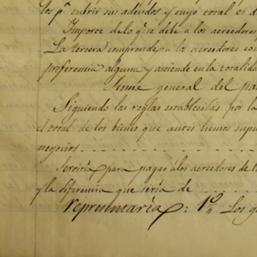 los p.ª cubrir sus adeudos y cuyo total es d
Importe de lo q.e debe á los acreedores
La tercera comprende á los acreedores con
preferencia alguna y asciende en la totalida
Suma general del pa
Siguiendo las reglas establecidas por la
total de los bienes que antes hemos supu
negocios
Serviría para pagar á los acreedores de l
y la diferencia que sería de
representaría: 1.º Los g